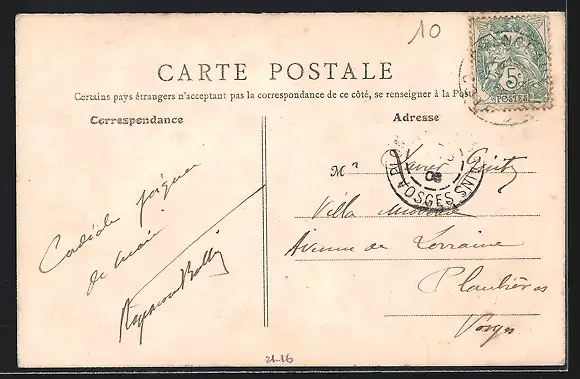 10
CARTE POSTALE
Certains pays étrangers n'acceptant pas la correspondance de ce côté, se renseigner à la Poste
Correspondance
Adresse
5c
POSTES
08
VOSGES
Mr Xavier
Villa
Avenue de Lorraine
Plombières
Vosges
Cordiale poignée
de main
Raymond
21-16